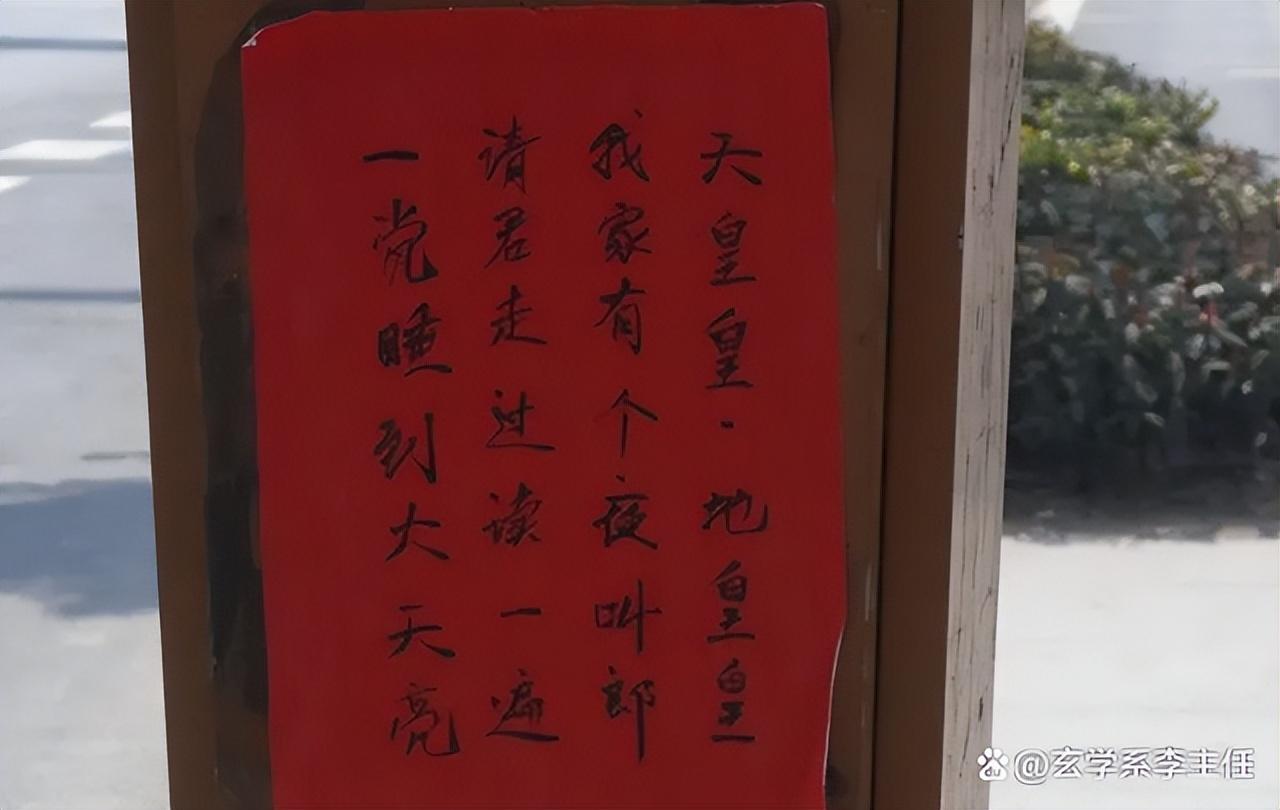 天皇皇·地皇皇
我家有个夜叫郎
请君走过读一遍
一觉睡到大天亮
@玄学系李主任